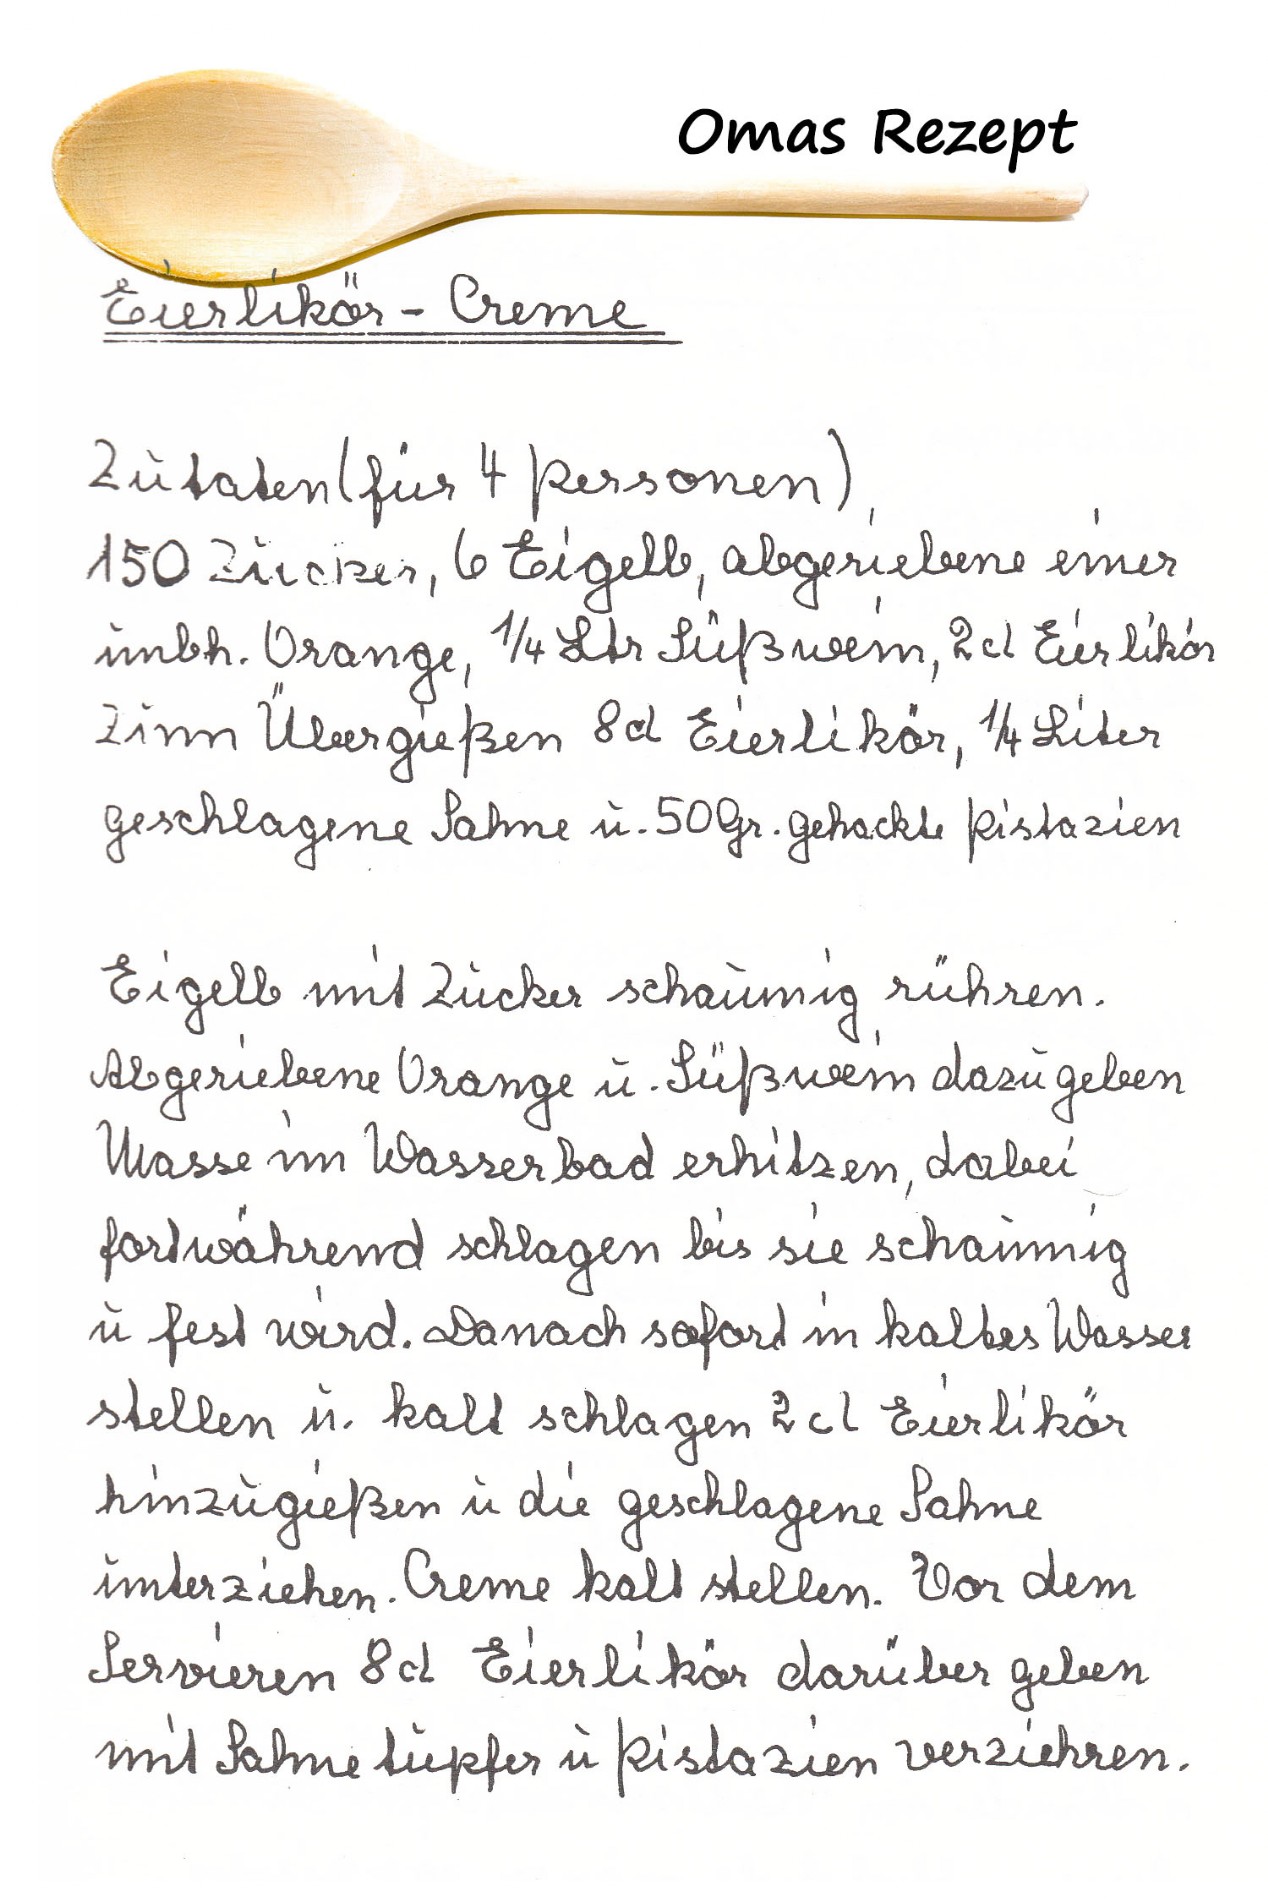 Omas Rezept
Eierlikör - Creme
Zutaten (für 4 Personen)
150 Zucker, 6 Eigelb, abgeriebene einer
unbh. Orange, 1/4 Ltr Süßwein, 2 cl Eierlikör
Zum Übergießen 8 cl Eierlikör, 1/4 Liter
geschlagene Sahne u. 50 Gr. gehackte Pistazien
Eigelb mit Zucker schaumig rühren.
Abgeriebene Orange u. Süßwein dazugeben
Masse im Wasserbad erhitzen, dabei
fortwährend schlagen bis sie schaumig
u fest wird. Danach sofort in kaltes Wasser
stellen u. kalt schlagen 2 cl Eierlikör
hinzugießen u die geschlagene Sahne
unterziehen. Creme kalt stellen. Vor dem
Servieren 8 cl Eierlikör darüber geben
mit Sahnetupfer u Pistazien verziehren.